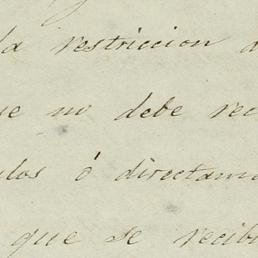 la restriccion d
ue no debe rec
ulos ó directam
que se recib